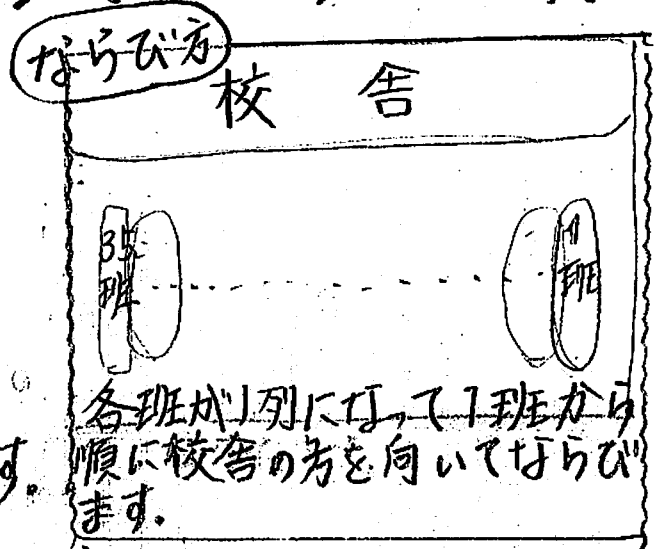 ならび方
校舎
35班
1班
各班が1列になって1班から
順に校舎の方を向いてならび
ます。
す。